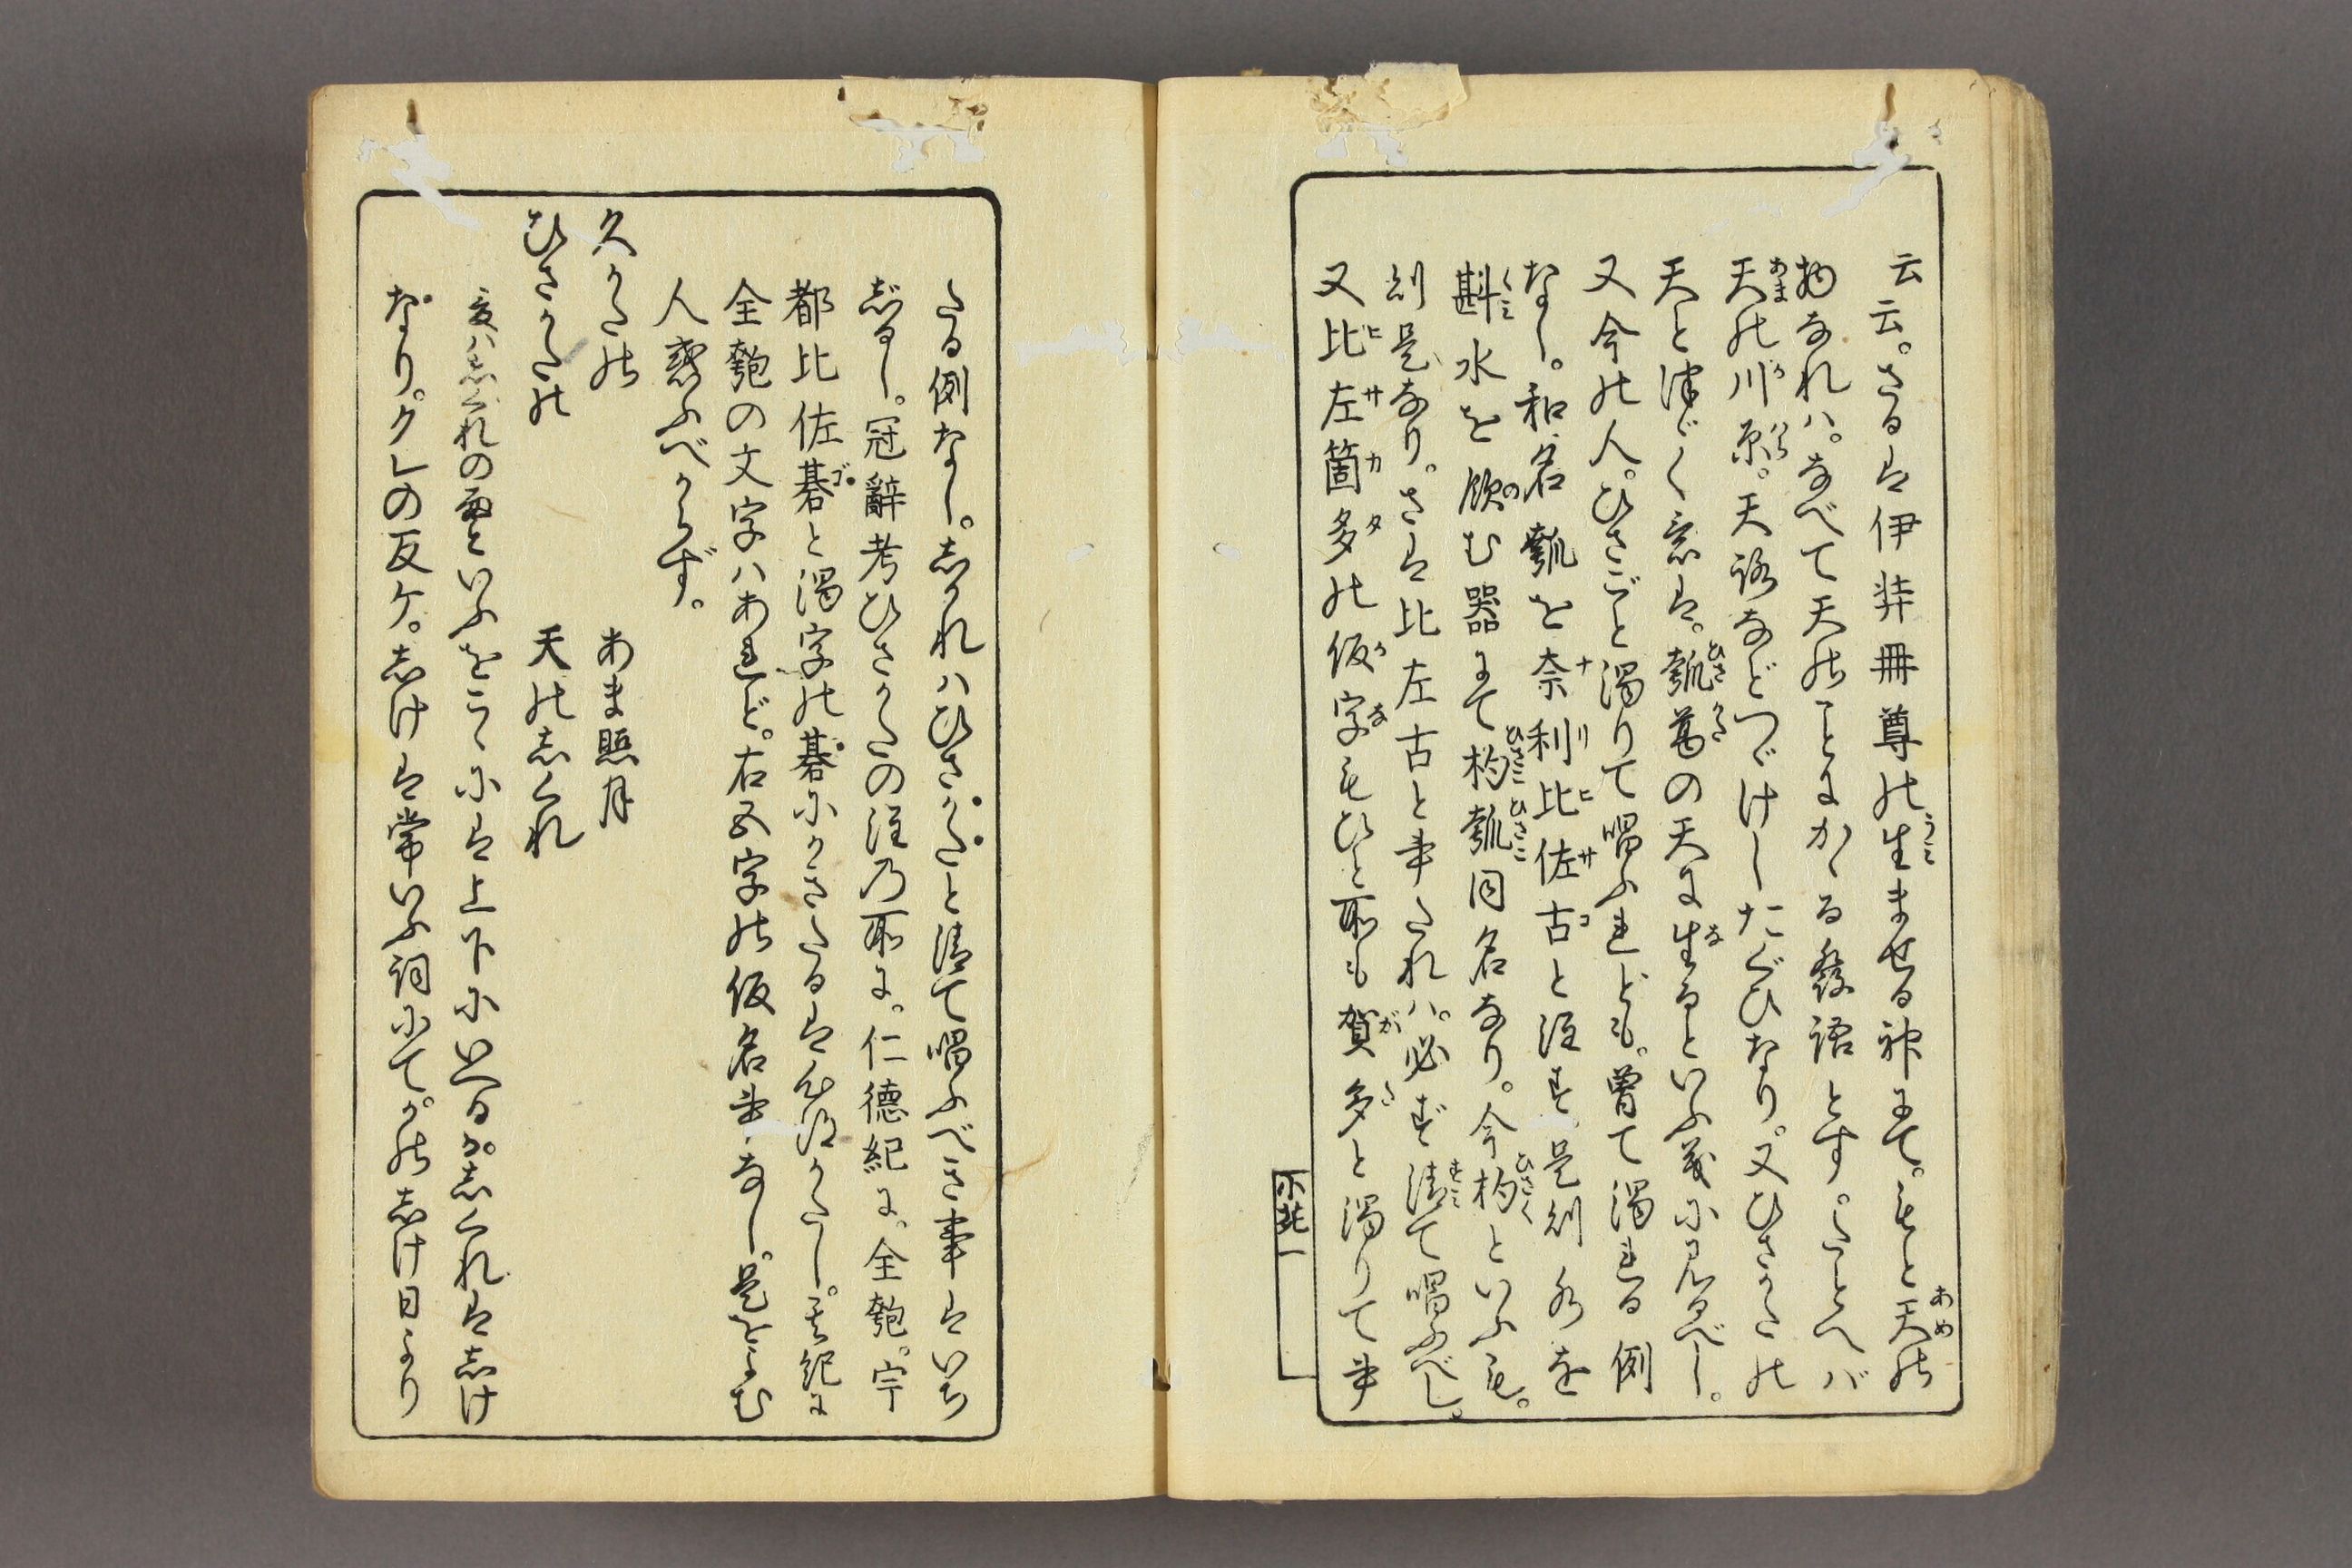 云云。さるは伊弉冊尊の生ませる神にて。もと天の
物なれハ。なべて天のことにかゝる發語とす。たとへバ
天の川原。天路などつゞけしたぐひなり。又ひさかたの
天とつゞく意は。瓠葛の天に生るといふ義に見るべし。
又今の人。ひさごと濁りて唱ふれども。曾て濁れる例
なし。和名瓠を奈利比佐古と注す。是則水を
斟水を飲む器にて杓瓠同名なり。今杓といふも。
則是なり。さは比左古と書たれハ。必ず清て唱ふべし。
又比左箇多の仮字もひと所も賀多と濁りて書
たる例なし。しかれハひさかたと清て唱ふべき事はいち
じるし。冠辭考ひさかたの注の所に。仁德紀に。全匏。宇
都比佐碁と濁字の碁にかきたるは心得がたし。其紀に
全匏の文字ハあれど。右五字の仮名書なし。是をよむ
人惑ふべからず。
久かたの　あま照月
ひさかたの　天のしぐれ
爰ハしぐれの雨といふをこゝには上下にいへるか。しぐれはしけ
なり。クレの反ケ。しけは常いふ詞にてかのしけ日より
尓北一